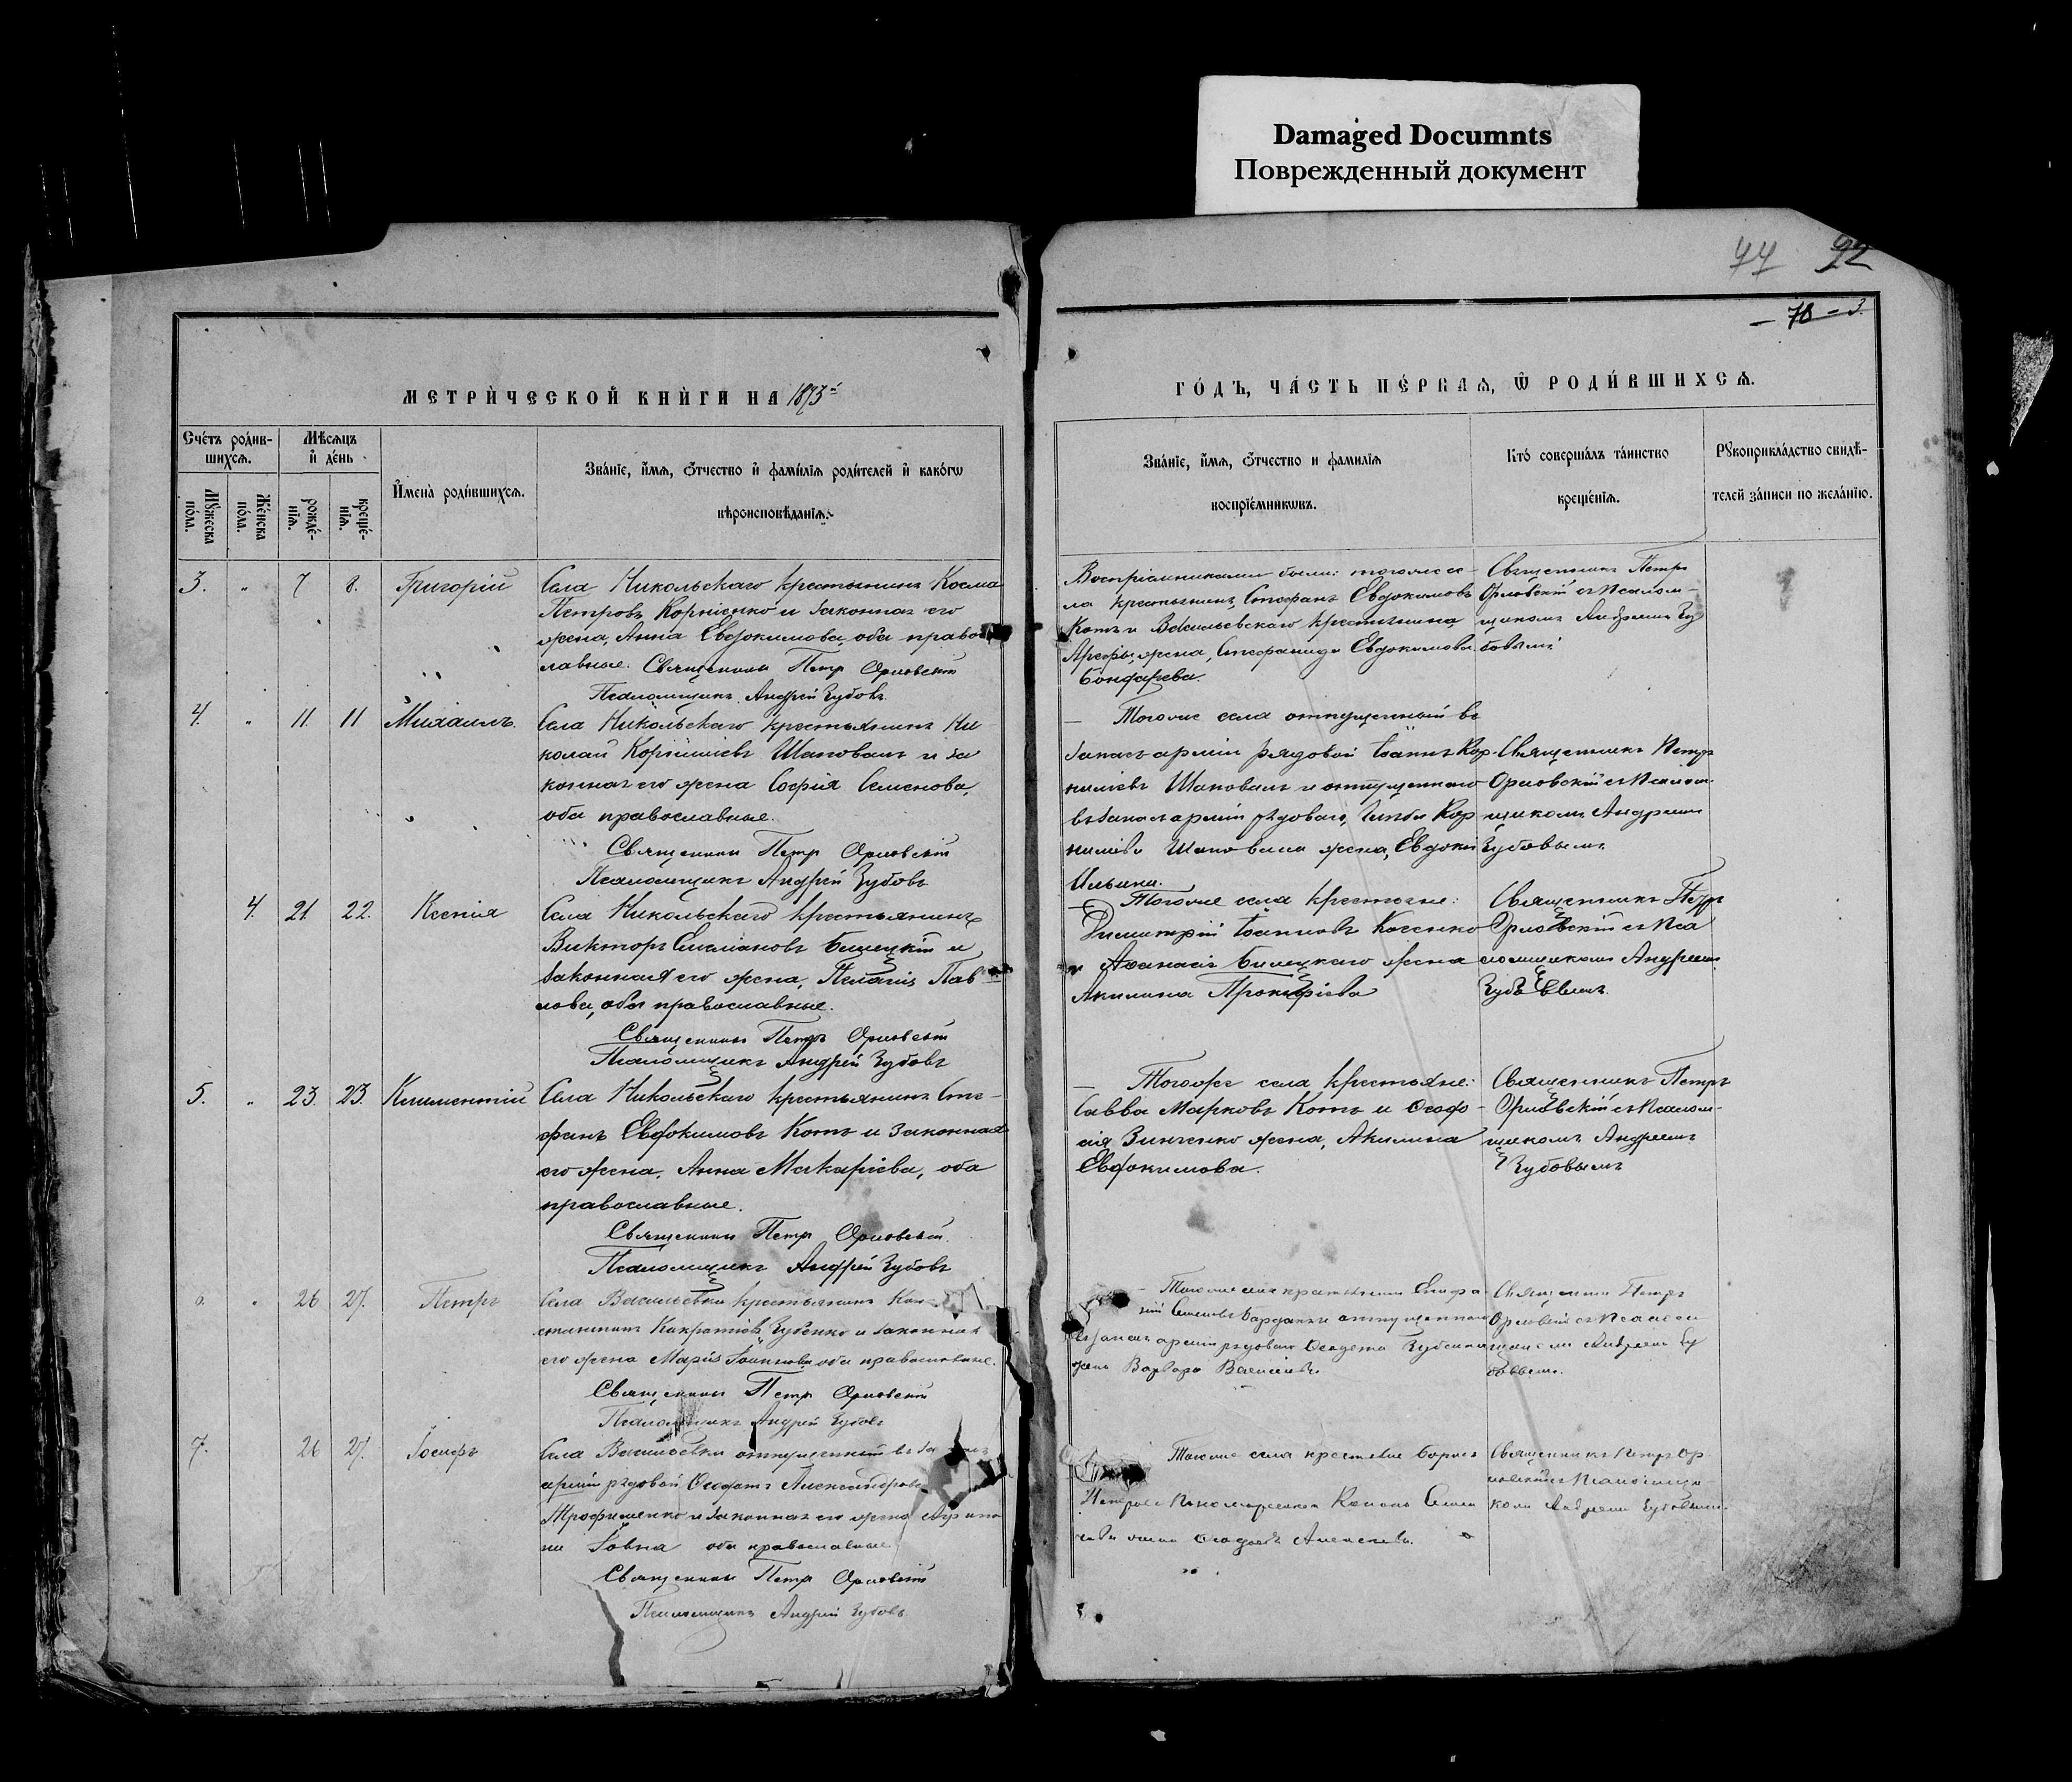 Damaged Documnts
Поврежденный документ
77 92
— 78 — 3.
МЕТРИ́ЧЕСКОЙ КНИ́ГИ НА 1893й
ГО́ДЪ, ЧА́СТЬ ПЕ́РВАЯ, Ѿ РОДИ́ВШИХСЯ.
Счéтъ рóдив-
шихся.
Мѣсяцъ
и́ дéнь
Мꙋ́жеска
пóла.
Жéнска
пóла.
рождé-
нїя.
крещé-
нїя.
И҆мена̀ роди́вшихся.
Звáнїе, и҆́мя, ѻ҆́тчество и҆ фамѝлїя родѝтелей и҆ какóгѡ
вѣроисповѣ́данїя.
Звáнїе, и҆́мя, ѻ҆́тчество и фамилїя
воспрїéмникѡвъ.
Ктó совершáлъ тáинство
крещéнїя.
Рꙋкоприклáдство свидѣ́-
телей зáписи по желáнїю.
3. " 7 8. Григорій
Села Никольскаго крестьянинъ Косма
Петровъ Корніенко и законная его
жена, Анна Евдокимова, оба право
славные. Священникъ Петр Орловскій
Псаломщикъ Андрей Зубовъ
Воспріемниками были: тогоже се-
ла крестьянинъ, Стефанъ Евдокимовъ
Котъ и Васильевскаго крестьянина
Арефы, жена, Стефанида Евдокимова
Бондарева.
Священникъ Петръ
Орловскій съ Псалом-
щикомъ Андреемъ Зу
бовымъ
4. " 11 11 Михаилъ.
Села Никольскаго крестьянинъ Ни
колай Корниліевъ Шаповалъ и за
конная его жена Софія Семенова,
оба православные.
Священникъ Петр Орловскій
Псаломщикъ Андрей Зубовъ
— Тогоже села отпущенный въ
запасъ арміи рядовой Іоаннъ Кор-
ниліевъ Шаповалъ и отпущеннаго
въ запасъ арміи рядоваго, Кор
ниліева Шаповала жена, Евдокія
Ильина.
Священникъ Петръ
Орловскій съ Псалом-
щикомъ Андреемъ
Зубовымъ.
4. 21 22. Ксенія
Села Никольскаго крестьянинъ
Викторъ Емеліановъ Билецкій и
законная его жена, Пелагія Пав
лова, оба православные.
Священникъ Петръ Орловскій
Псаломщикъ Андрей Зубовъ
— Тогоже села крестьяне:
Димитрій Іоанновъ Косенко
и Аѳанасія Билецкаго жена
Акилина Прокофіева
Священникъ Петръ
Орловскій съ Пса
ломщикомъ Андреемъ
Зубовымъ.
5. " 23. 23. Климентій
Села Никольскаго крестьянинъ Сте-
фанъ Евдокимовъ Котъ и законная
его жена, Анна Макаріева, оба
православные.
Священникъ Петр Орловскій.
Псаломщикъ Андрей Зубовъ
— Тогоже села крестьяне:
Савва Марковъ Котъ и Ѳеодо-
сія Зинченко жена, Акилина
Евдокимова.
Священникъ Петръ
Орловскій съ Псалом-
щикомъ Андреемъ
Зубовымъ
6. " 26 27. Петръ
Села Васильевки крестьянинъ Кон-
стантинъ Зубенко и законная
его жена Марія Іоаннова оба православные.
Священникъ Петр Орловскій
Псаломщикъ Андрей Зубовъ
— Тогоже села крестьянинъ
Семеновъ и отпущеннаго
въ запасъ арміи рядоваго Зубенка
жена Варвара Васильева.
Священникъ Петръ
Орловскій съ Псалом
щикомъ Андреемъ Зу
бовымъ.
7. 26 27. Іосифъ
Села Васильевки отпущенный въ
арміи рядовой Ѳеодотъ Александровъ
Трофименко и законная его жена
Іовна оба православные
Священникъ Петр Орловскій
Псаломщикъ Андрей Зубовъ.
Тогоже села крестьяне Борисъ
Петровъ
жена Алексеева.
Священникъ Петръ Ор
ловскій съ Псаломщи-
комъ Андреемъ Зубовымъ.